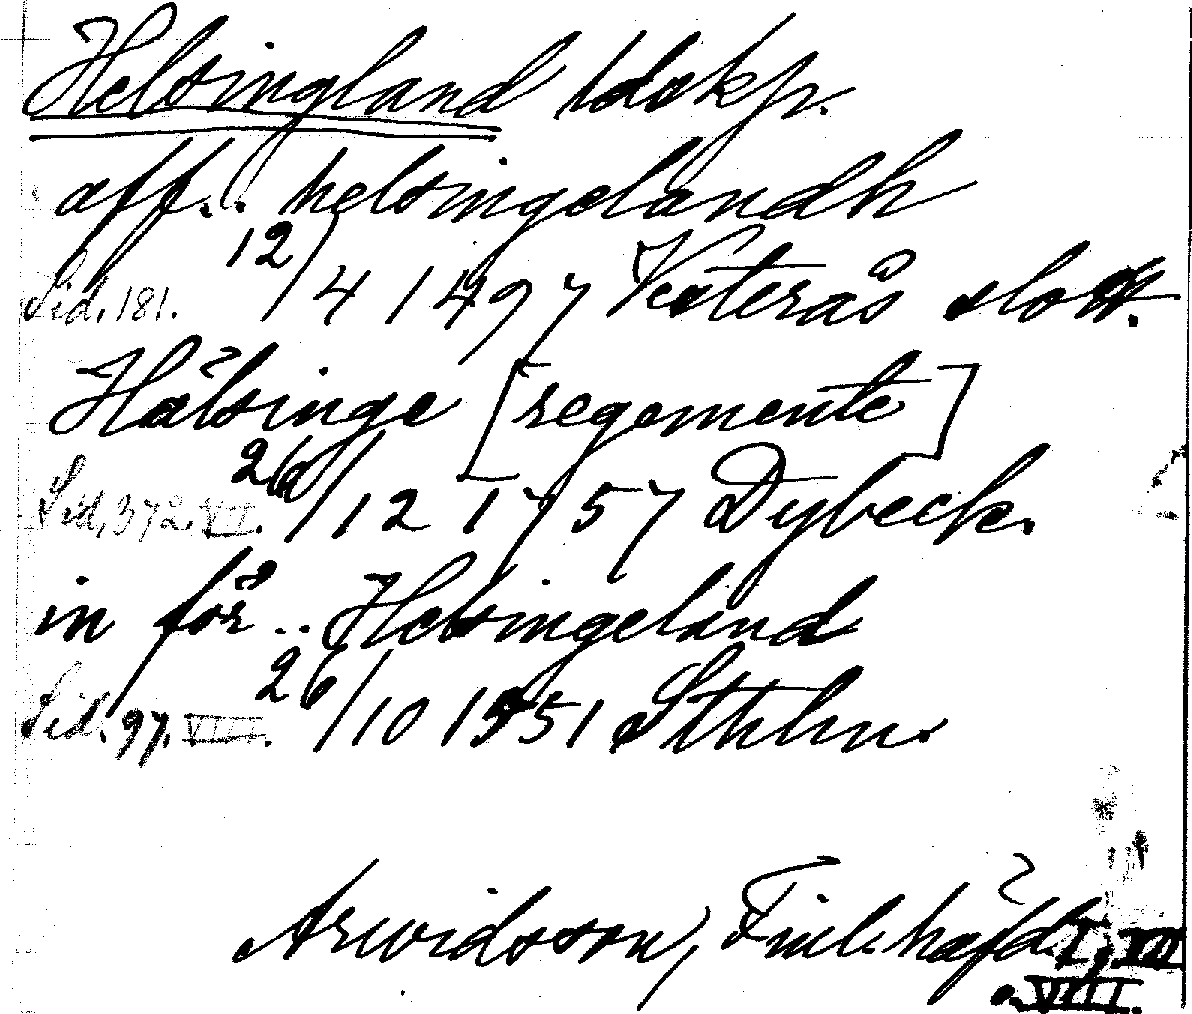 Helsingland ldskp.
aff.. helsingelandh
Sid. 181. 12/4 1497 Västerås slott.
Hälsinge [regemente]
Sid. 372. VII. 26/12 1757 Dybeck.
in för .. Helsingeland
Sid. 97. VIII. 26/10 1551 Sthlm.
Arwidsson, Finl. häfd. I, VII
o. VIII.